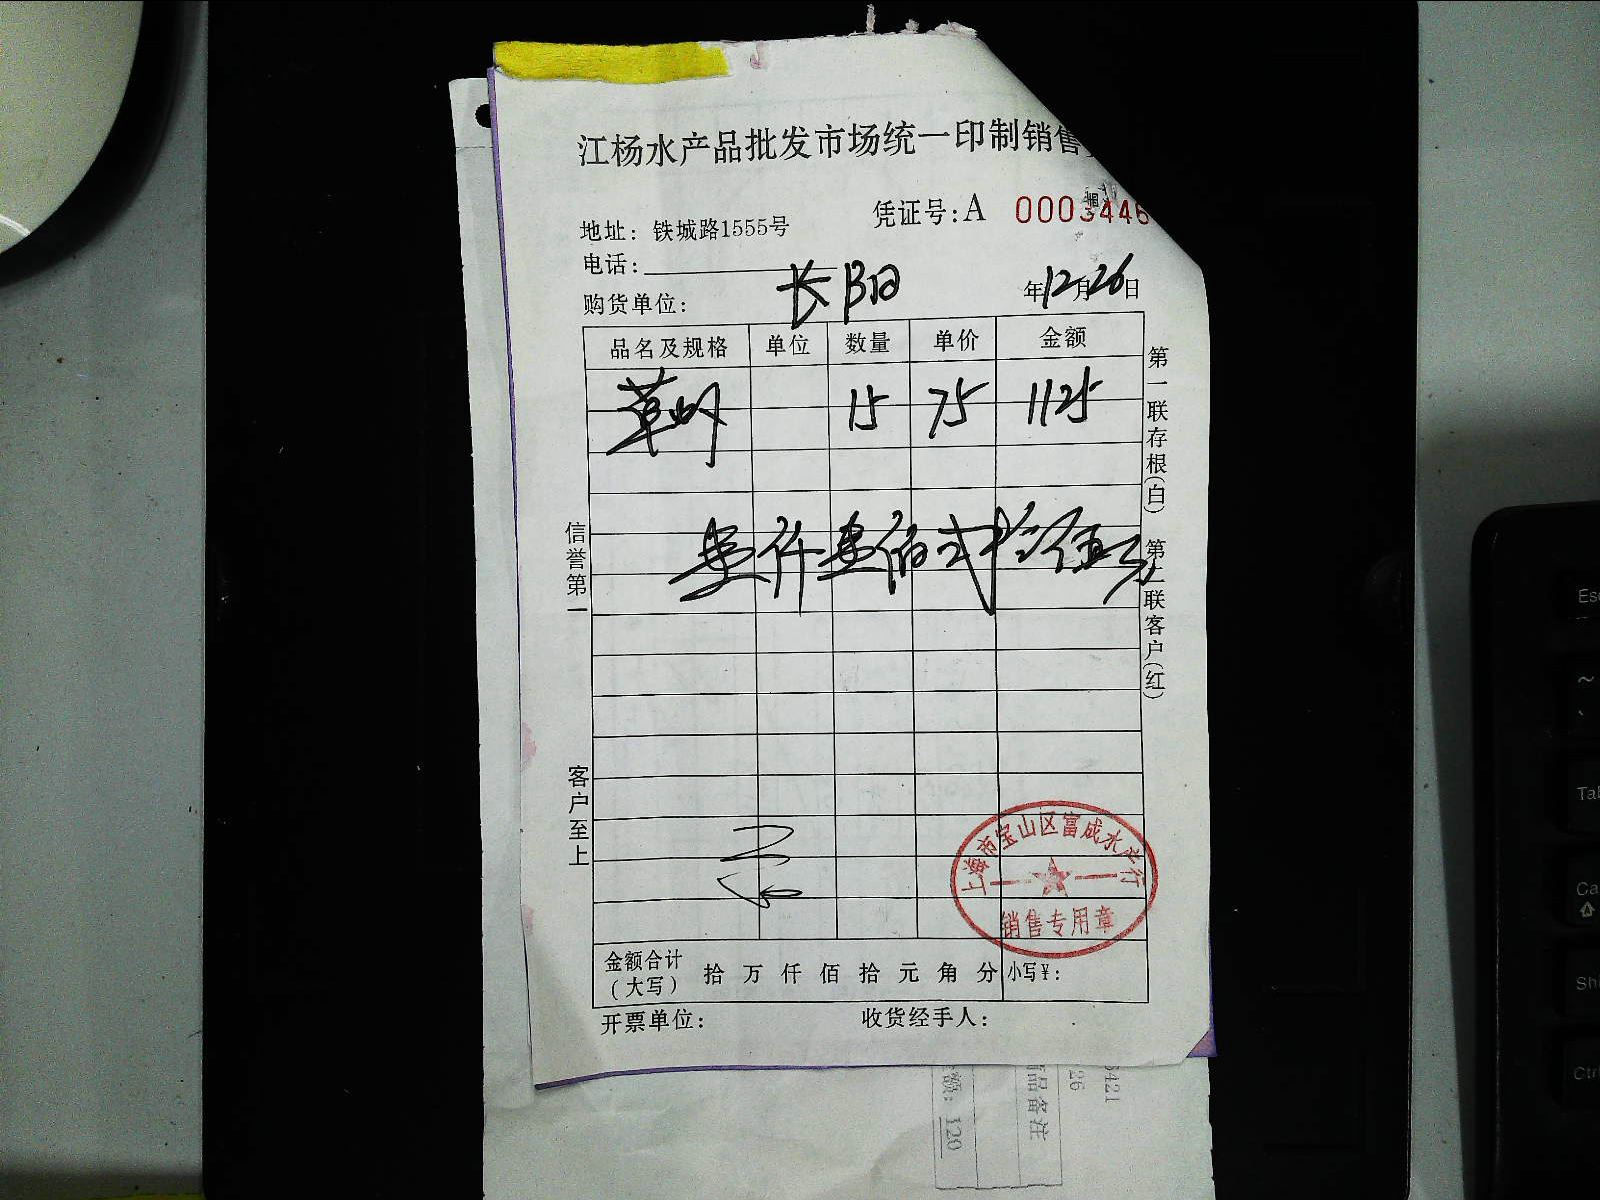 江杨水产品批发市场统一印制销售
凭证号:A 0003446
地址: 铁城路1555号
电话:
购货单位: 长阳 年12月26日
品名及规格 单位 数量 单价 金额
草虾 15 75 1125
壹仟壹佰弍拾伍元
信誉第一
客户至上
第一联存根(白) 第二联客户(红)
上海市宝山区富成水产行
销售专用章
金额合计(大写) 拾 万 仟 佰 拾 元 角 分 小写¥:
开票单位: 收货经手人:
品备注
额: 120
5421
26